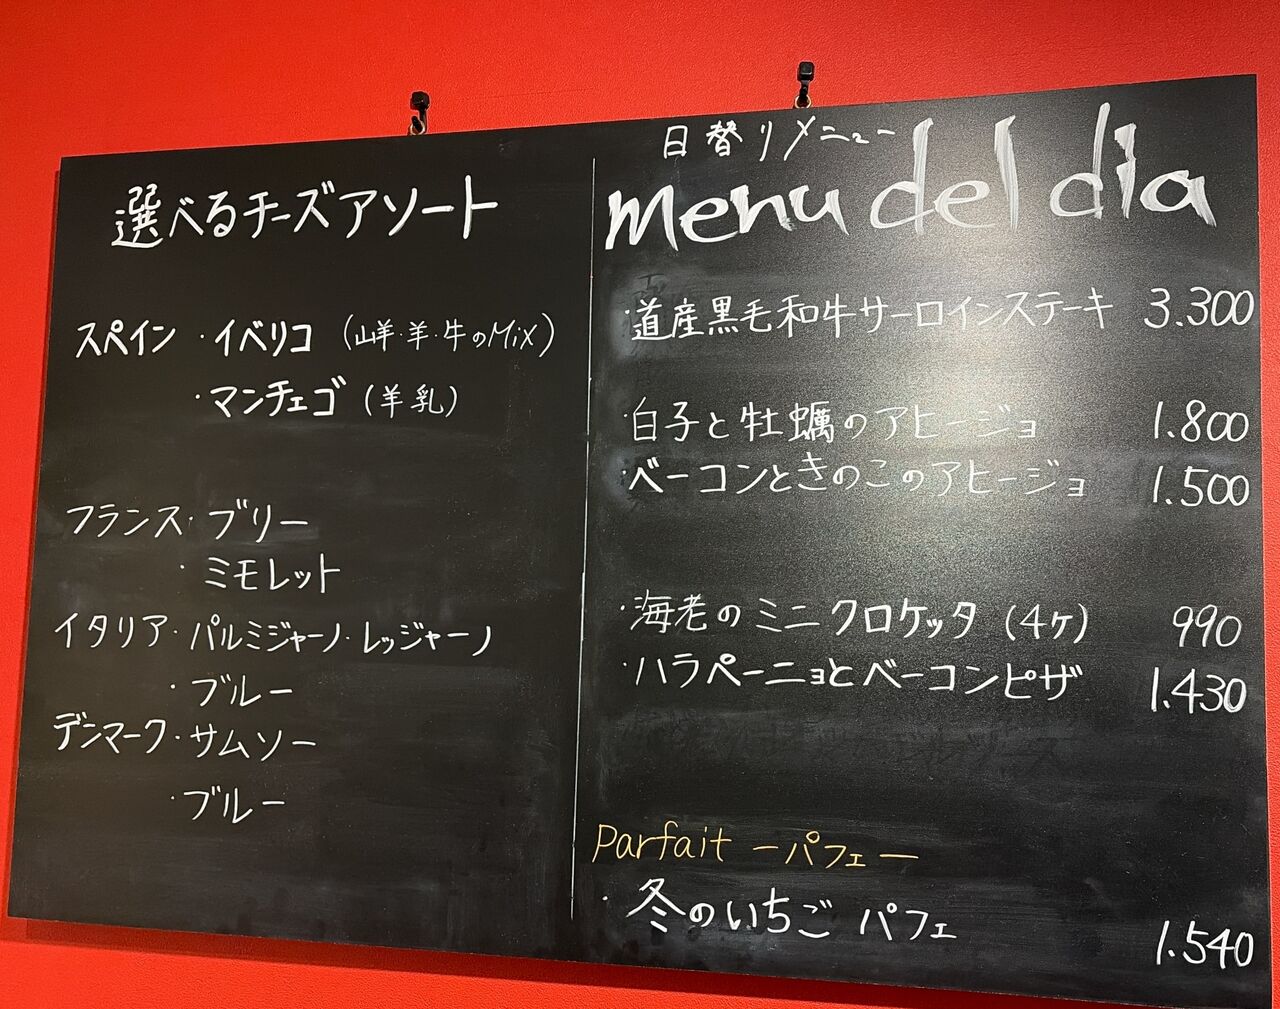 選べるチーズアソート
スペイン ・イベリコ (山羊・羊・牛のMiX)
・マンチェゴ (羊乳)
フランス・ブリー
・ミモレット
イタリア・パルミジャーノ・レッジャーノ
・ブルー
デンマーク・サムソー
・ブルー
日替りメニュー
menu del dia
・道産黒毛和牛サーロインステーキ 3.300
・白子と牡蠣のアヒージョ 1.800
・ベーコンときのこのアヒージョ 1.500
・海老のミニクロケッタ (4ヶ) 990
・ハラペーニョとベーコンピザ 1.430
Parfait ーパフェー
・冬のいちごパフェ 1.540